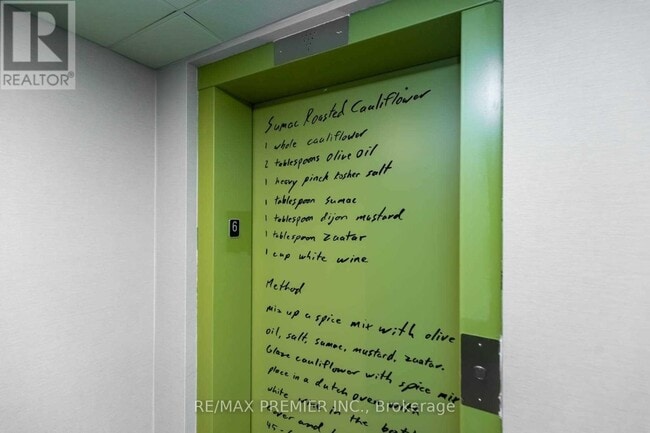 REALTOR®
Sumac Roasted Cauliflower
1 whole cauliflower
2 tablespoons olive oil
1 heavy pinch kosher salt
1 tablespoon sumac
1 tablespoon dijon mustard
1 tablespoon zaatar
1 cup white wine
6
Method
mix up a spice mix with olive
oil, salt, sumac, mustard, zaatar.
Glaze cauliflower with spice mix
place in a dutch oven with
white in the
RE/MAX PREMIER INC., Brokerage
and
45